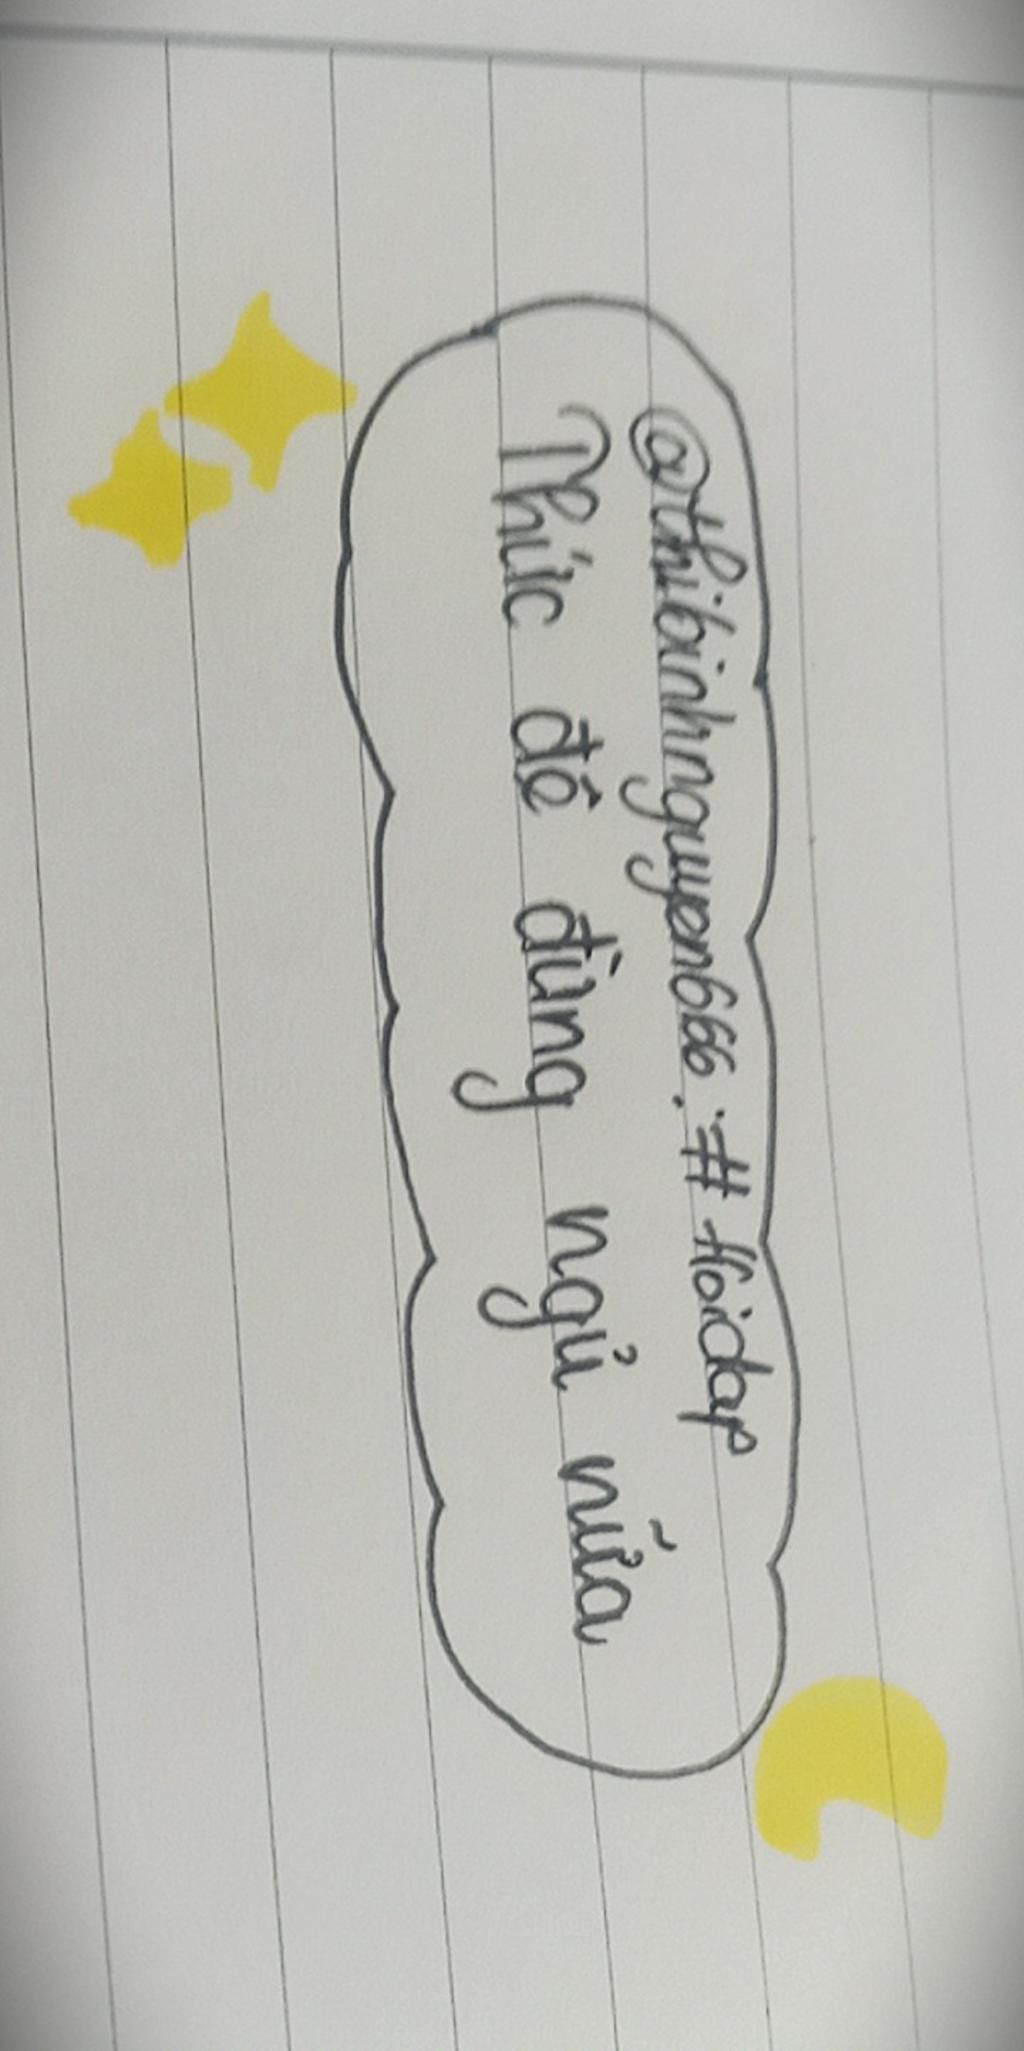 @thibinhnguyen666: # Hoidap
Thức đê đừng ngủ nữa